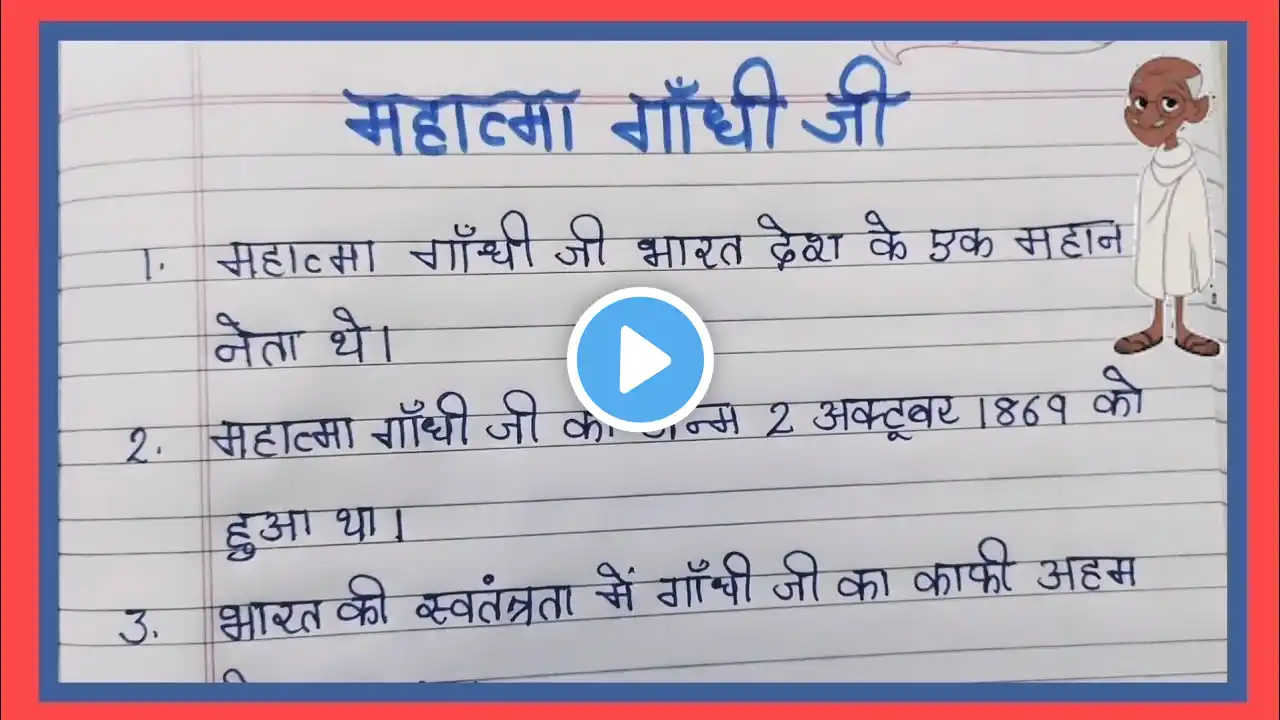 महात्मा गाँधी जी
1. महात्मा गाँधी जी भारत देश के एक महान
नेता थे।
2. महात्मा गाँधी जी का जन्म 2 अक्टूबर 1869 को
हुआ था।
3. भारत की स्वतंत्रता में गाँधी जी का काफी अहम